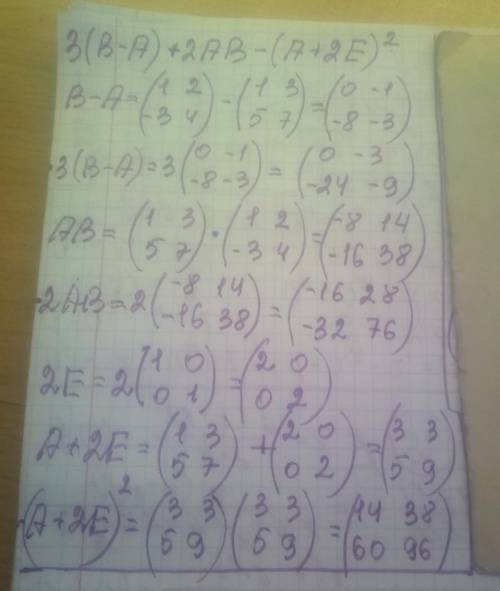 3(B-A)+2AB-(A+2E)²
B-A=(1 2; -3 4)-(1 3; 5 7)=(0 -1; -8 -3)
3(B-A)=3(0 -1; -8 -3)=(0 -3; -24 -9)
AB=(1 3; 5 7)·(1 2; -3 4)=(-8 14; -16 38)
2AB=2(-8 14; -16 38)=(-16 28; -32 76)
2E=2(1 0; 0 1)=(2 0; 0 2)
A+2E=(1 3; 5 7)+(2 0; 0 2)=(3 3; 5 9)
(A+2E)²=(3 3; 5 9)(3 3; 5 9)=(44 38; 60 96)